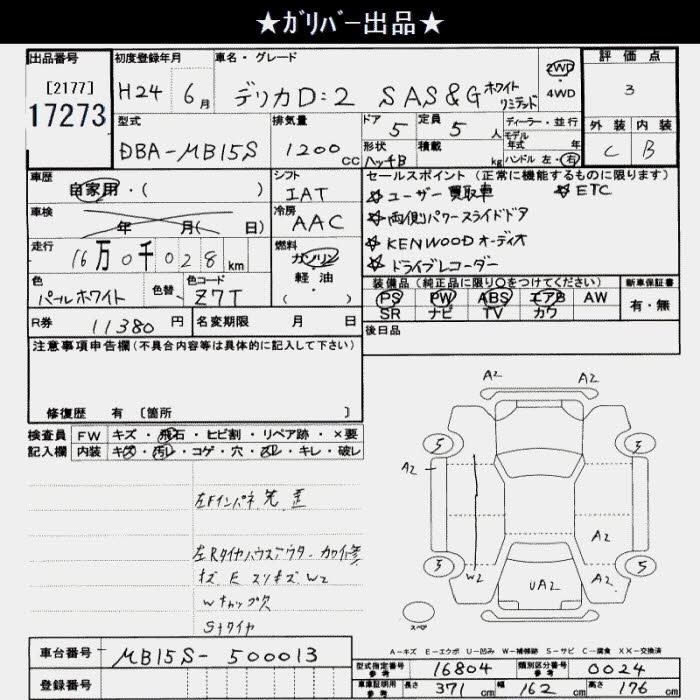 ★ｶﾞﾘﾊﾞｰ出品★
出品番号
[2177]
17273
初度登録年月
H24 6月
車名・グレード
デリカD:2 SAS&G ホワイト
リミテッド
2WD
4WD
評価点
3
型式
DBA-MB15S
排気量
1200cc
ドア 5
定員 5人
形状
ハッチB
積載 kg
ディーラー・並行
モデル
年式 年
ハンドル 左・右
外装 内装
C B
車歴
自家用・( )
シフト
IAT
車検
年 月( 日)
冷房
AAC
走行
16万0千028km
燃料
ガソリン
軽油
( )
色
パールホワイト
色替
色コード
Z7T
R券 11380円
名変期限 月 日
セールスポイント(正常に機能するものに限ります)
☆ユーザー買取車 ☆ETC
☆両側パワースライドドア
☆KENWOODオーディオ
☆ドライブレコーダー
装備品(純正品に限り〇をつけてください)
PS PW ABS エアB AW
SR ナビ TV カワ
新車保証書
有・無
後日品
注意事項申告欄(不具合内容等は具体的に記入して下さい)
修復歴 有〔箇所 〕
検査員 FW キズ・飛石・ヒビ割・リペア跡・×要
記入欄 内装 キズ・汚レ・コゲ・穴・スレ・キレ・破レ
左Fインパネ先歪
左Rタイヤハウスアウター カワ修
キズ E スリキズ W2
Wキャップ欠
Sナタイヤ
A2 A2
5 3
A2
A2
3 W2 A2 5
UA2
スペア
A-キズ E-エクボ U-凹み W-補修跡 S-サビ C-腐食 XX-交換済
車台番号 MB15S-500013
登録番号
型式指定番号
参考
16804
類別区分番号
参考
0024
車庫証明用
参考
長さ 371cm 幅 162cm 高さ 176cm